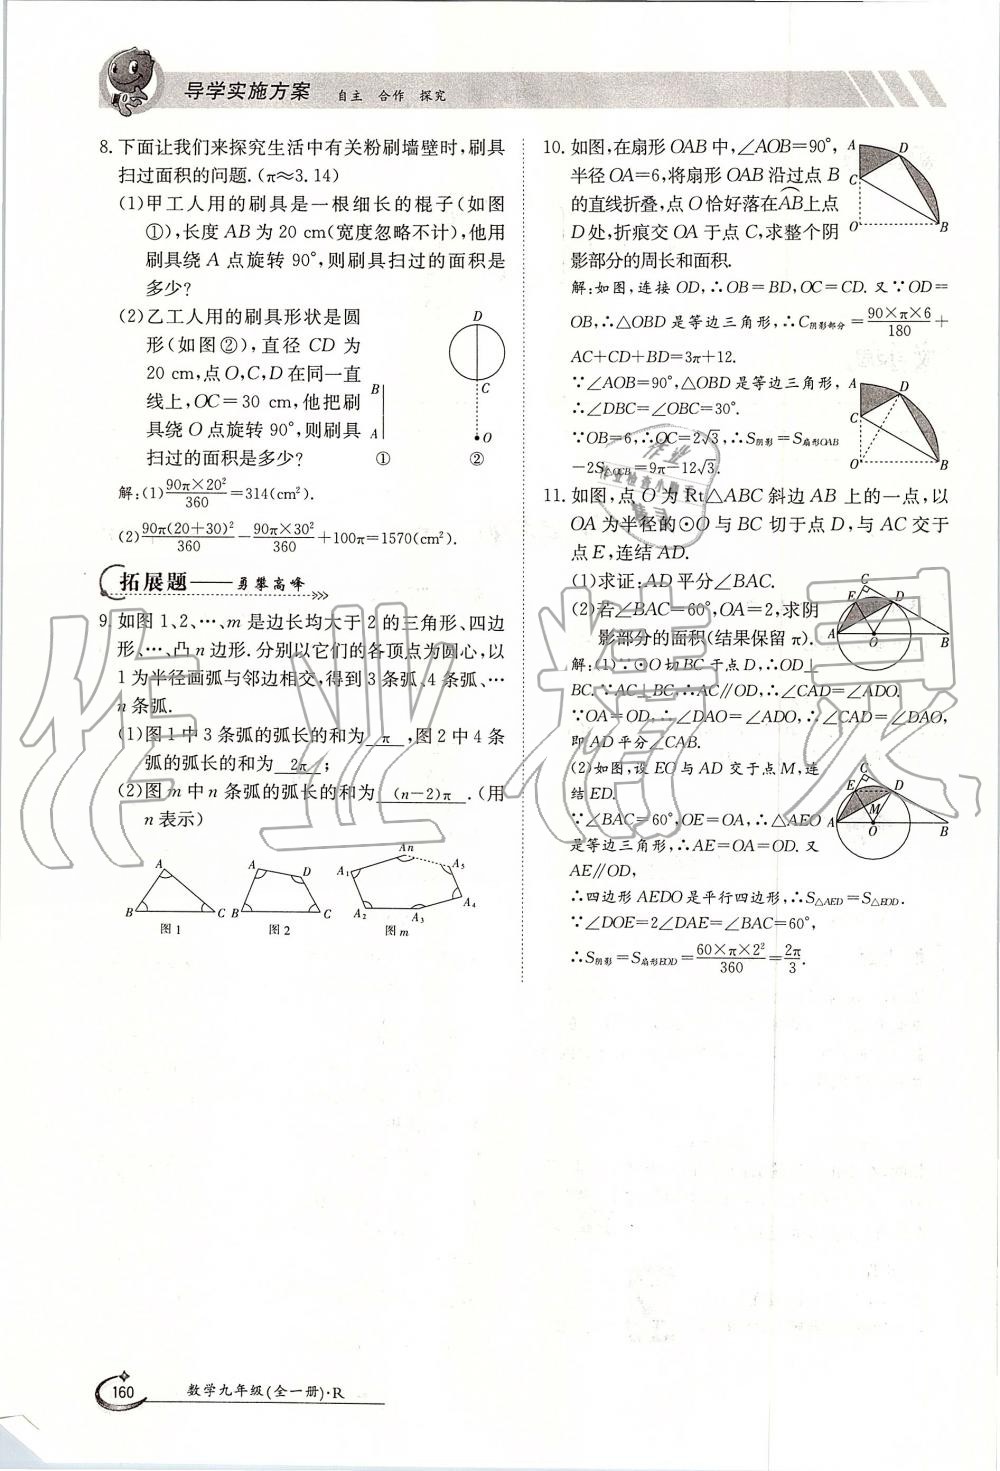 导学实施方案 自主 合作 探究
8. 下面让我们来探究生活中有关粉刷墙壁时,刷具
扫过面积的问题.(π≈3.14)
(1)甲工人用的刷具是一根细长的棍子(如图
①),长度 AB 为 20 cm(宽度忽略不计),他用
刷具绕 A 点旋转 90°,则刷具扫过的面积是
多少?
(2)乙工人用的刷具形状是圆
形(如图②),直径 CD 为
20 cm,点 O,C,D 在同一直
线上,OC=30 cm,他把刷
具绕 O 点旋转 90°,则刷具
扫过的面积是多少?
D
C
O
B
A
① ②
解:(1) 90π×20²/360 =314(cm²).
(2) 90π(20+30)²/360 - 90π×30²/360 +100π=1570(cm²).
拓展题——勇攀高峰
9. 如图 1、2、…、m 是边长均大于 2 的三角形、四边
形、…、凸 n 边形.分别以它们的各顶点为圆心,以
1 为半径画弧与邻边相交,得到 3 条弧、4 条弧、…
n 条弧.
(1)图 1 中 3 条弧的弧长的和为 π ,图 2 中 4 条
弧的弧长的和为 2π ;
(2)图 m 中 n 条弧的弧长的和为 (n-2)π .(用
n 表示)
A B C
图 1
A D B C
图 2
An A₁ A₅ A₂ A₃ A₄
图 m
10. 如图,在扇形 OAB 中,∠AOB=90°,
半径 OA=6,将扇形 OAB 沿过点 B
的直线折叠,点 O 恰好落在AB上点
D 处,折痕交 OA 于点 C,求整个阴
影部分的周长和面积.
A D C O B
解:如图,连接 OD,∴OB=BD,OC=CD.又∵OD=
OB,∴△OBD 是等边三角形,∴C阴影部分= 90×π×6/180 +
AC+CD+BD=3π+12.
∵∠AOB=90°,△OBD 是等边三角形,
∴∠DBC=∠OBC=30°.
∵OB=6,∴OC=2√3,∴S阴影=S扇形OAB
-2S△OCB=9π-12√3.
A D C O B
11. 如图,点 O 为 Rt△ABC 斜边 AB 上的一点,以
OA 为半径的⊙O 与 BC 切于点 D,与 AC 交于
点 E,连结 AD.
(1)求证:AD 平分∠BAC.
(2)若∠BAC=60°,OA=2,求阴
影部分的面积(结果保留 π).
C E D A O B
解:(1)∵⊙O 切 BC 于点 D,∴OD⊥
BC.∵AC⊥BC,∴AC∥OD,∴∠CAD=∠ADO.
∵OA=OD,∴∠DAO=∠ADO,∴∠CAD=∠DAO,
即 AD 平分∠CAB.
(2)如图,设 EO 与 AD 交于点 M,连
结 ED.
∵∠BAC=60°,OE=OA,∴△AEO
是等边三角形,∴AE=OA=OD.又
AE∥OD,
C E D M A O B
∴四边形 AEDO 是平行四边形,∴S△AED=S△EOD.
∵∠DOE=2∠DAE=∠BAC=60°,
∴S阴影=S扇形EOD= 60×π×2²/360 = 2π/3.
作业精灵
160 数学九年级(全一册)·R